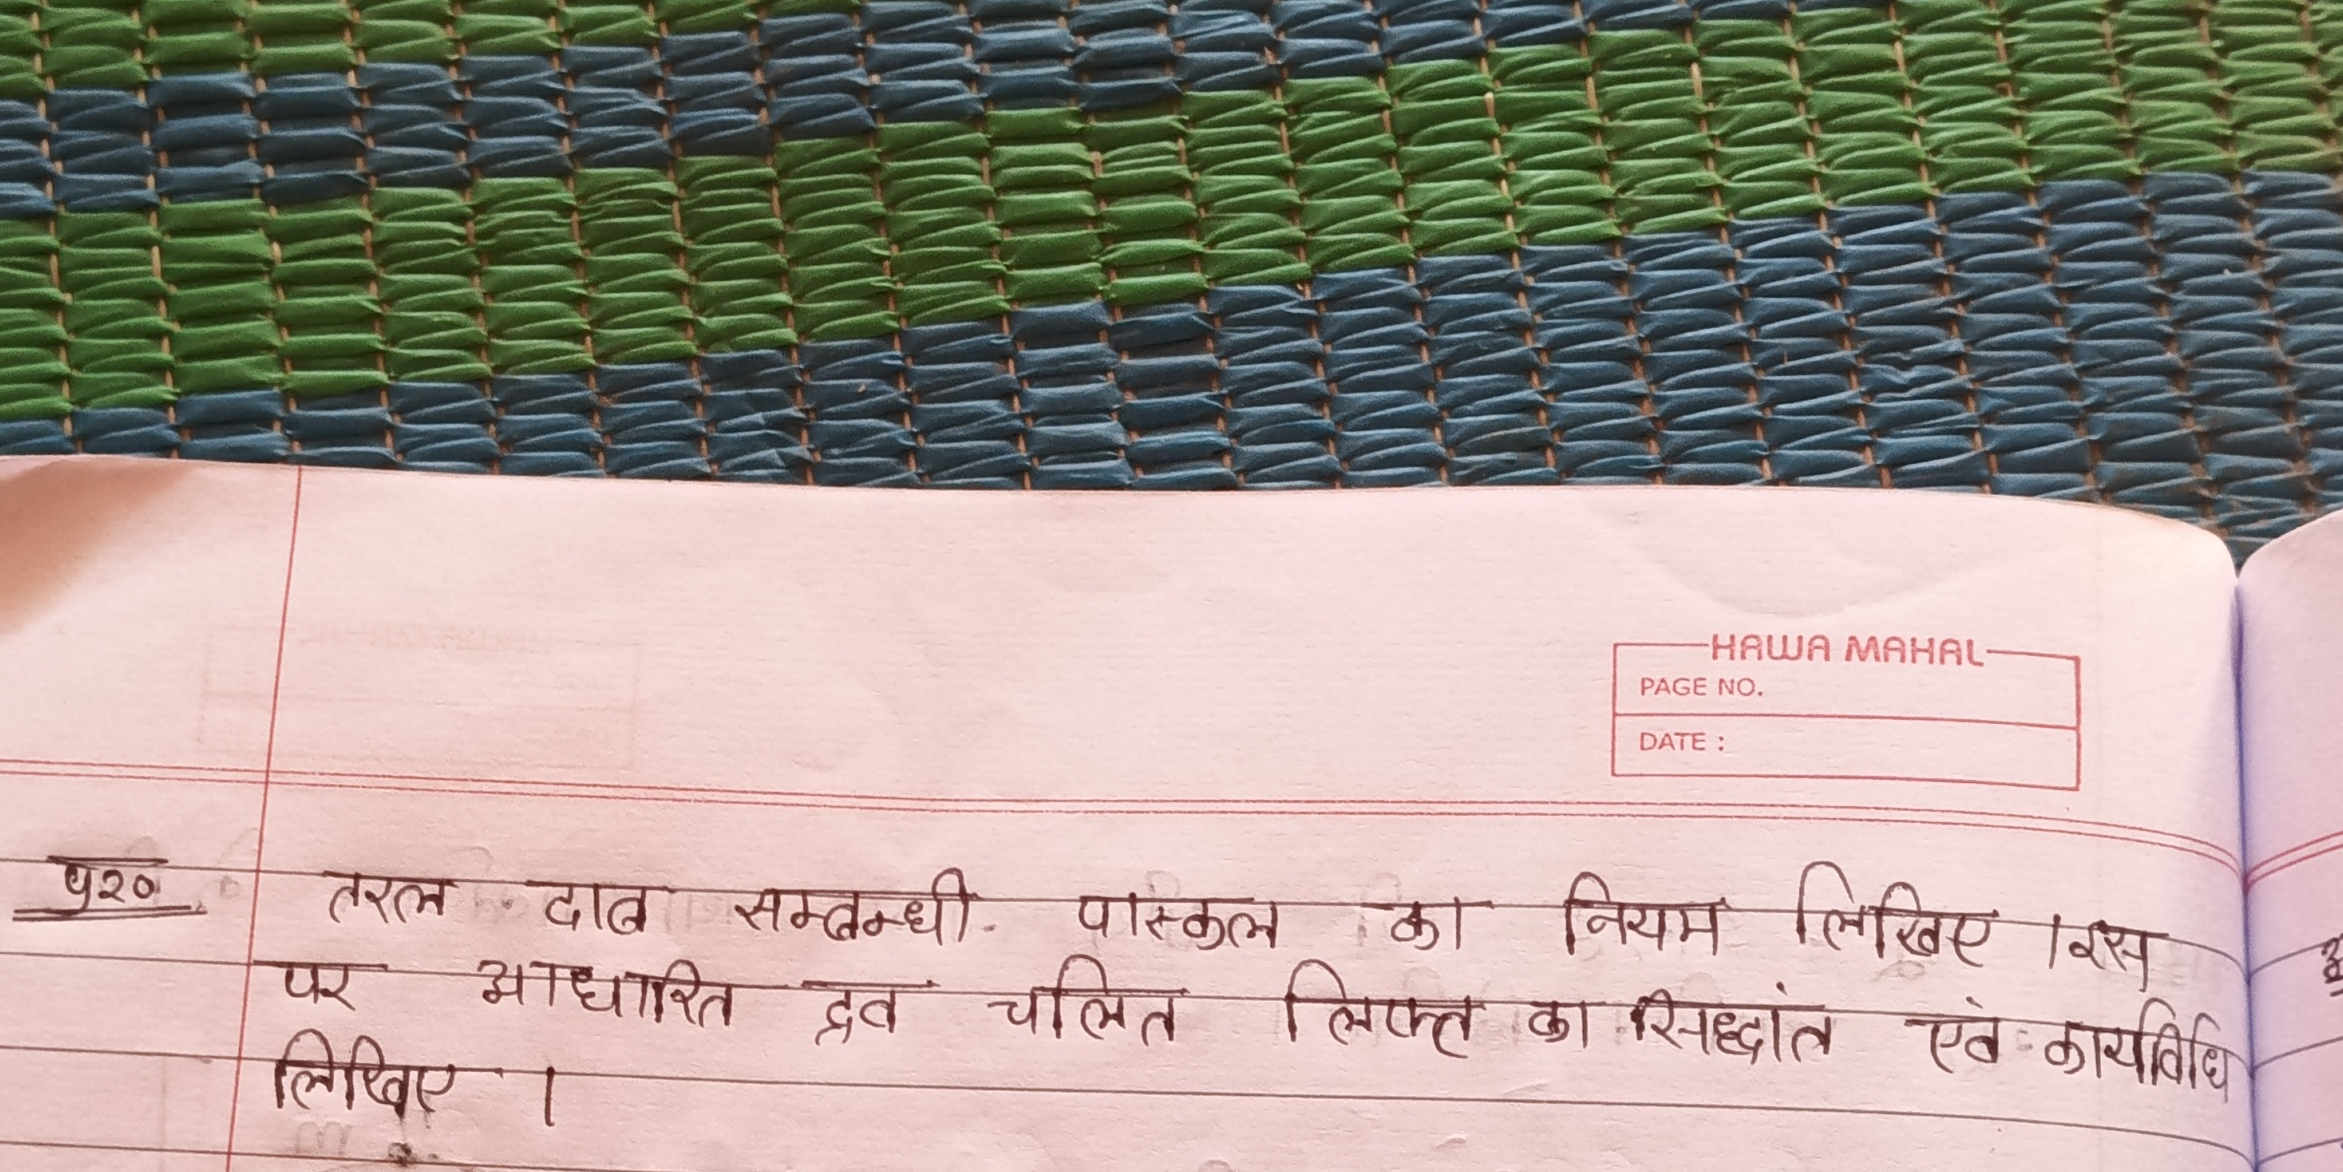 HAWA MAHAL
PAGE NO.
DATE :
प्र२० तरल दाब सम्बन्धी पास्कल का नियम लिखिए । इस
पर आधारित द्रव चलित लिफ्ट का सिद्धांत एवं कार्यविधि
लिखिए ।